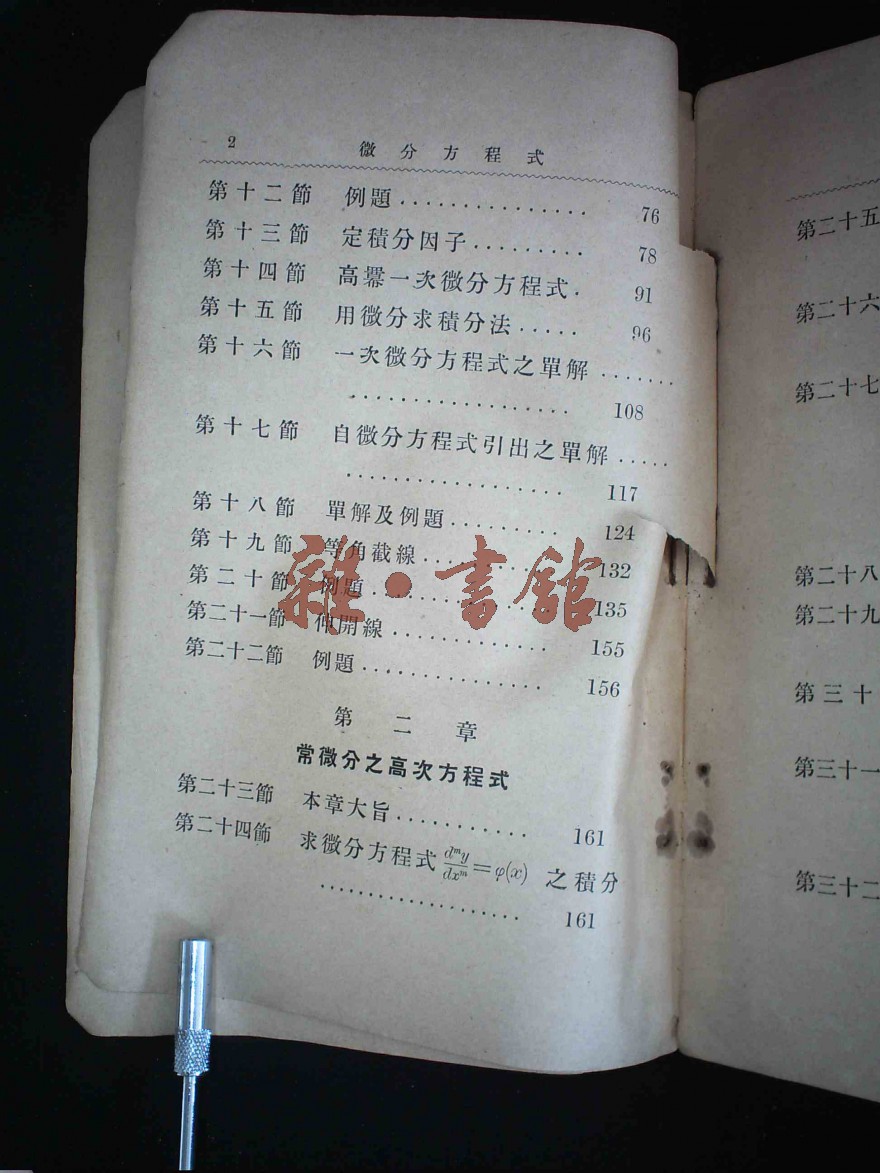 2 微分方程式
第十二節 例題............... 76
第十三節 定積分因子.......... 78
第十四節 高羃一次微分方程式. 91
第十五節 用微分求積分法..... 96
第十六節 一次微分方程式之單解.......
................... 108
第十七節 自微分方程式引出之單解.....
................... 117
第十八節 單解及例題.......... 124
第十九節 等角截線........... 132
第二十節 例題............... 135
第二十一節 伸開線............. 155
第二十二節 例題............... 156
第二章
常微分之高次方程式
第二十三節 本章大旨........... 161
第二十四節 求微分方程式 d^m y/dx^m = φ(x) 之積分
................... 161
雜·書館
第二十五
第二十六
第二十七
第二十八
第二十九
第三十
第三十一
第三十二